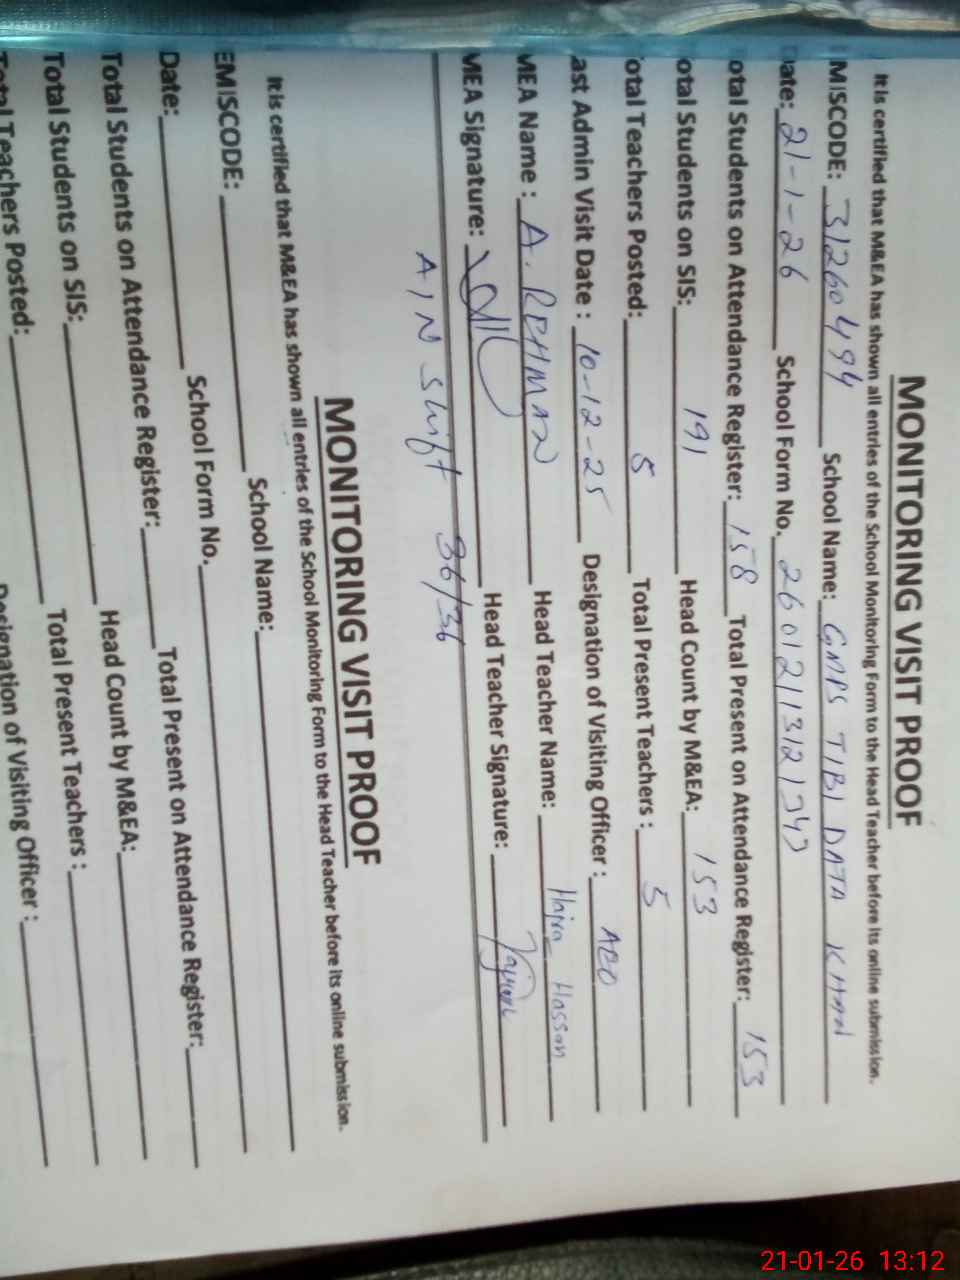 MONITORING VISIT PROOF
It is certified that M&EA has shown all entries of the School Monitoring Form to the Head Teacher before its online submission.
MISCODE: 31260494 School Name: GMPS TIBI DATA KHAN
Date: 21-1-26 School Form No. 2601211312134
otal Students on Attendance Register: 158 Total Present on Attendance Register: 153
otal Students on SIS: 191 Head Count by M&EA: 153
otal Teachers Posted: 5 Total Present Teachers : 5
ast Admin Visit Date : 10-12-25 Designation of Visiting Officer : AEO
MEA Name : A. REHMAN Head Teacher Name: Hajra Hassan
MEA Signature: Head Teacher Signature:
A/N Shift 36/36
MONITORING VISIT PROOF
It is certified that M&EA has shown all entries of the School Monitoring Form to the Head Teacher before its online submission.
EMISCODE: School Name:
Date: School Form No.
Total Students on Attendance Register: Total Present on Attendance Register:
Total Students on SIS: Head Count by M&EA:
Total Teachers Posted: Total Present Teachers :
Designation of Visiting Officer :
21-01-26 13:12